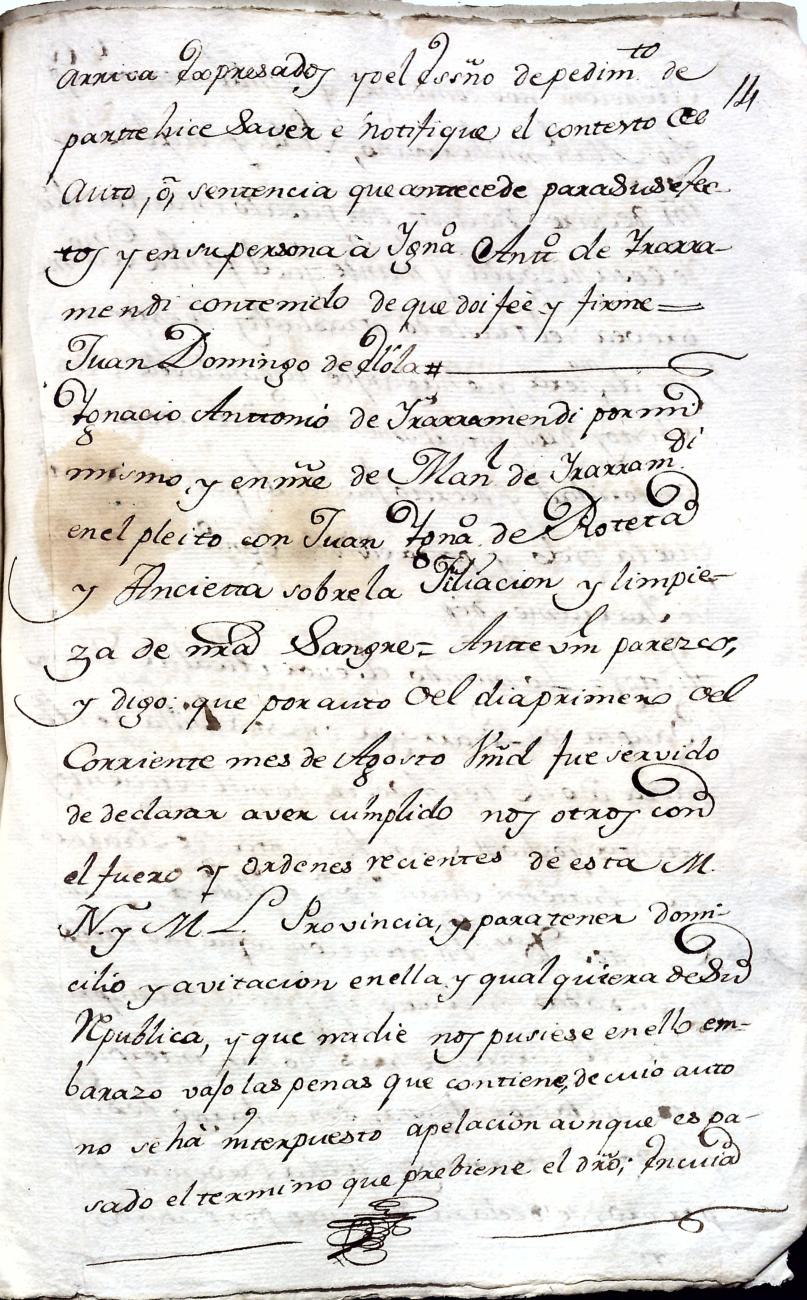 arriva Expresados y del Essño de pedim.to de
14
partte hice Saver e notifique el contexto del
Auto, ô, sentencia que anttecede para sus efec
tos y en su persona à Ygn.o Antt.o de Yrarra-
mendi contenido de que doi feè y firme =
Juan Domingo de Olola #
Ygnacio Anttonio de Yrarramendi por mi
mismo, y en nre de Man.l de Yrarram.di
en el pleito con Juan Ygn.o de Roteta
y Ancietta sobre la Filiacion y limpie-
za de nrã Sangre = Antte vm parezco,
y digo: que por auto del dia primero del
Corriente mes de Agosto Vmd fue servido
de declarar aver cumplido nos otros con
el fuero y Ordenes recientes de esta M.
N. y M. L. Provincia, y para tener domi-
cilio y avitacion en ella y qual quiera de Su
Republica, y que nadie nos pusiese en ello em-
barazo vajo las penas que contiene, de cuio auto
no se hà interpuesto apelacion aunque es pa-
sado el termino que prebiene el dro; En cuia